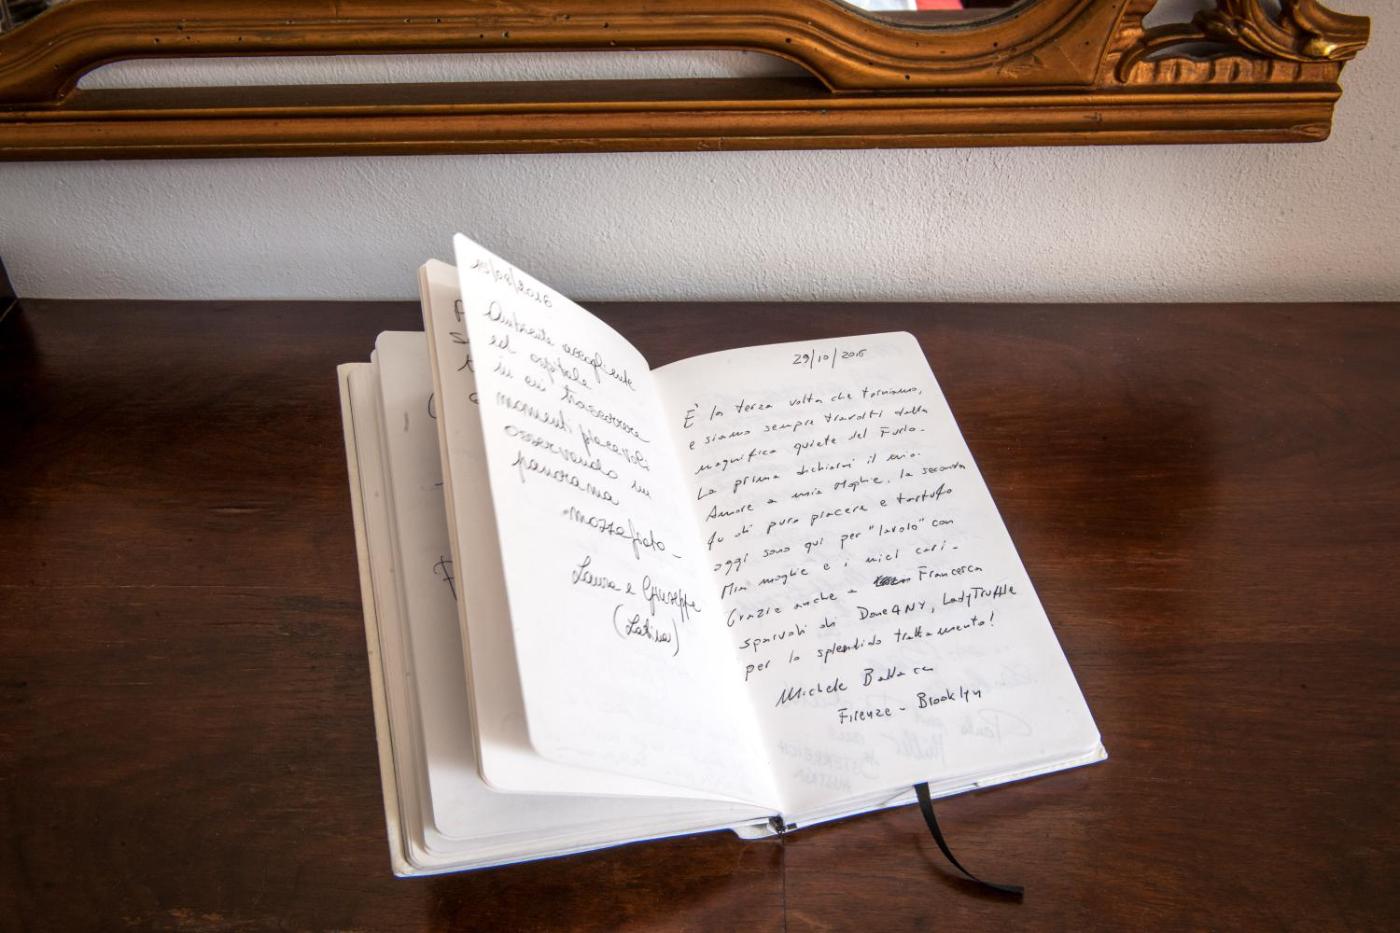 Ambiente accogliente
ed ospitale
in cui trascorrere
momenti piacevoli
osservando un
panorama
mozzafiato -
Laura e Giuseppe
(Latina)
29/10/2015
È la terza volta che torniamo,
e siamo sempre travolti dalla
magnifica quiete del Furlo.
La prima dichiarai il mio
Amore a mia Moglie, la seconda
fu di puro piacere e tartufo
oggi sono qui per "lavoro" con
Mia moglie e i miei cari.
Grazie anche a Francesca
sparvoli di Done4NY, LadyTruffle
per lo splendido trattamento!
Michele
Firenze - Brooklyn
ÖSTERREICH
AUSTRIA